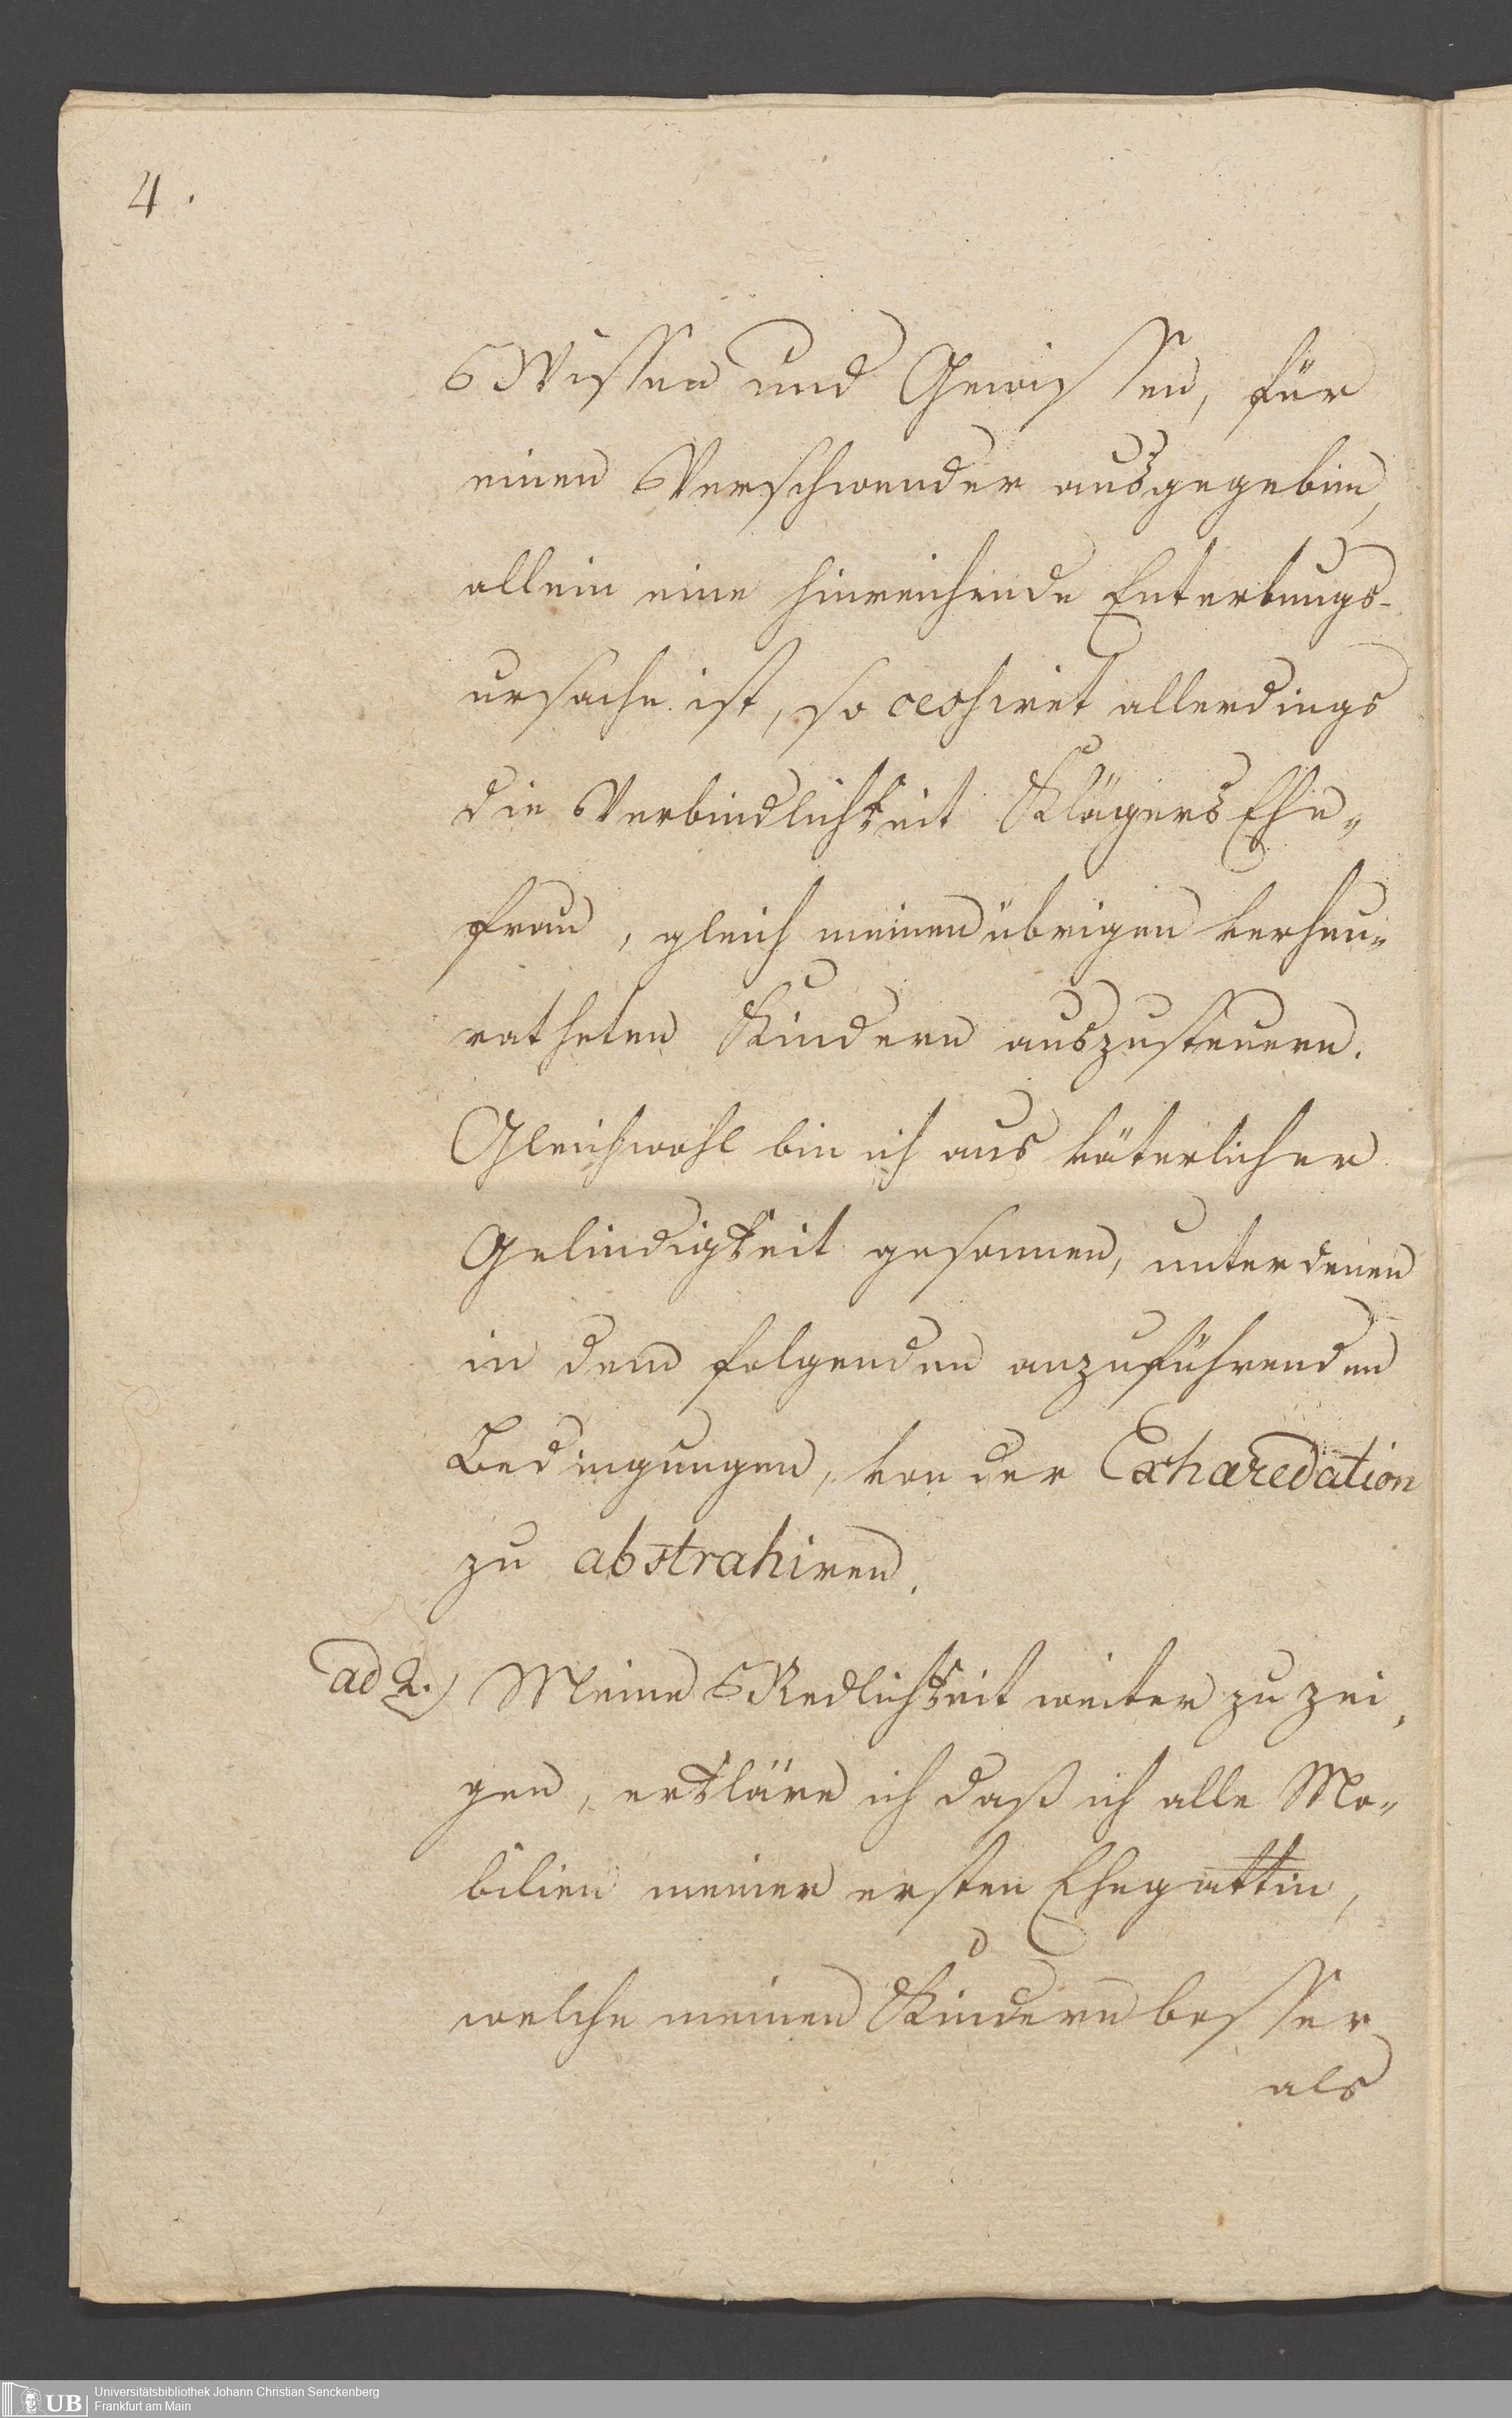 4.
Wissen und Gewissen, für
einen Verschwender ausgegeben,
allein eine hinreichende Enterbungs-
ursache ist, so cessiret allerdings
die Verbindlichkeit Klägers Ehe„
frau, gleich meinen übrigen verheu„
ratheten Kindern auszusteuern.
Gleichwohl bin ich aus väterlicher
Gelindigkeit gesonnen, unter denen
in dem folgenden anzuführenden
Bedingungen, von der Exhæredation
zu abstrahiren.
ad 2.) Meine Redlichkeit weiter zu zei„
gen, erkläre ich daß ich alle Mo„
bilien meiner ersten Ehegattin,
welche meinen Kindern besser
als
UB Universitätsbibliothek Johann Christian Senckenberg
Frankfurt am Main